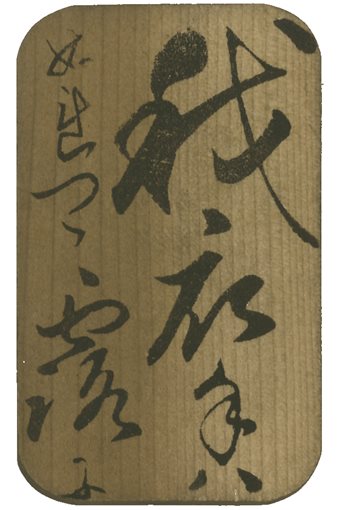 我衣手ハ
露に
ぬれつゝ